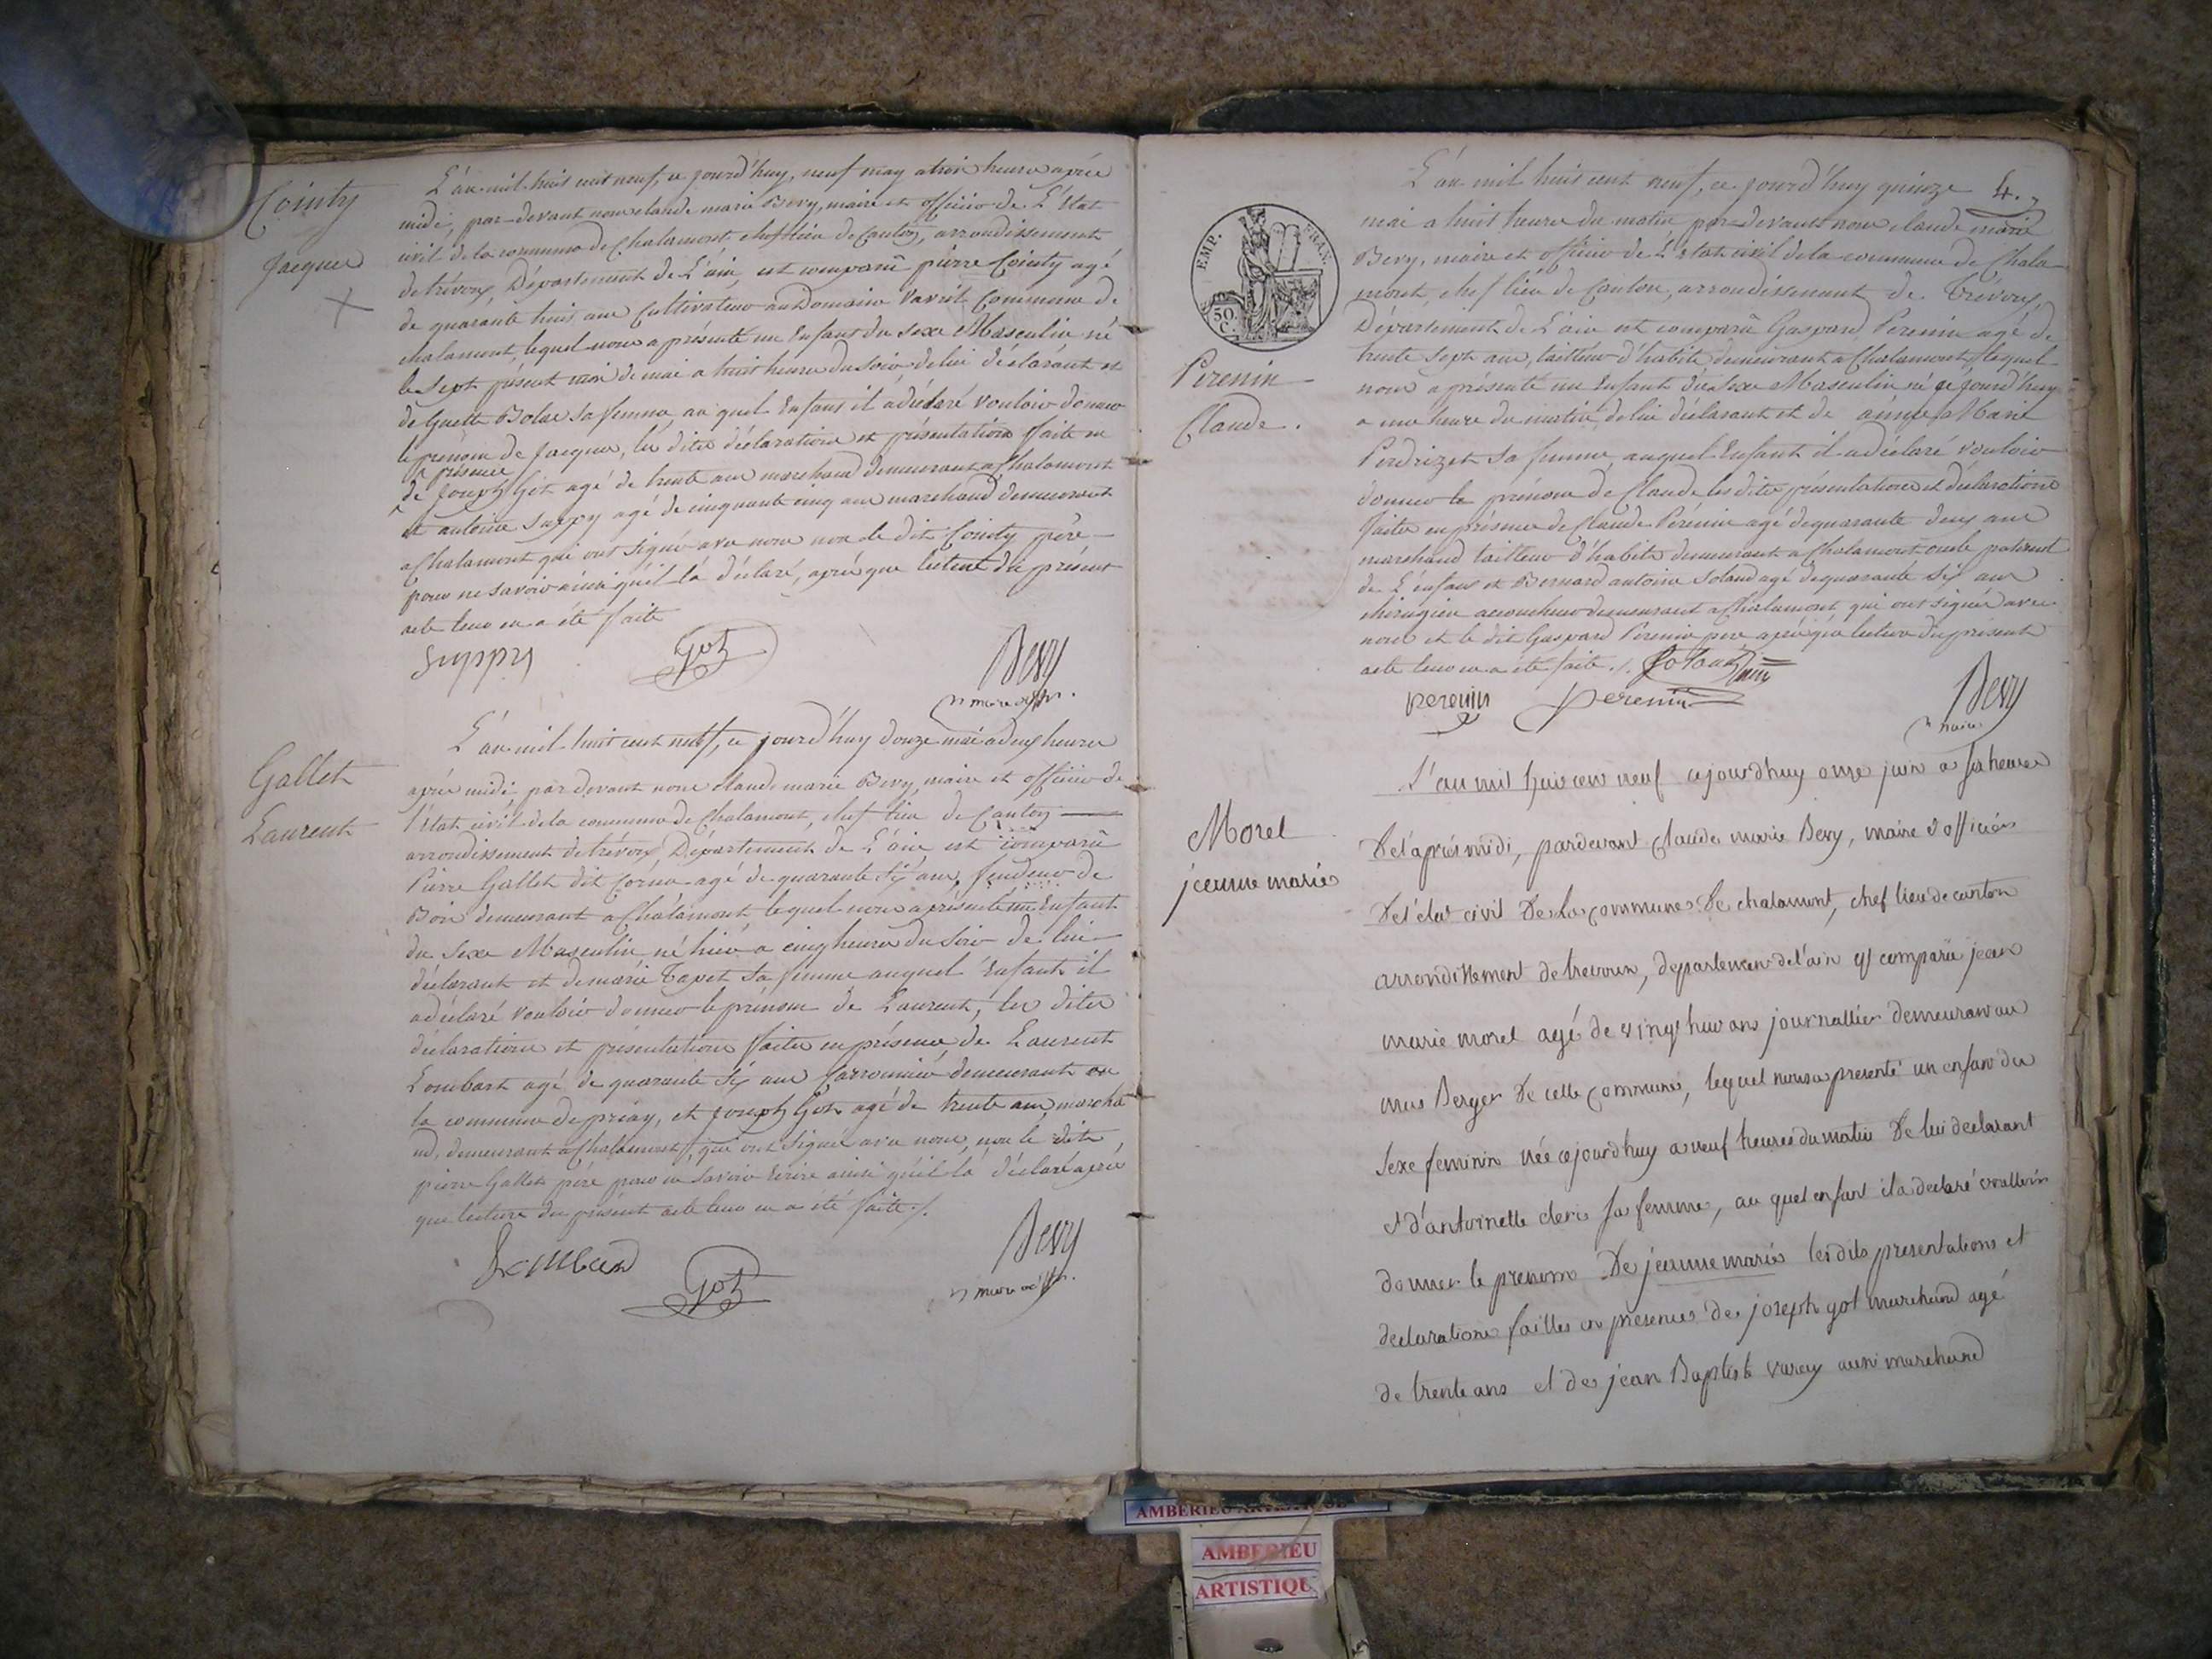 Cointy
Jacques
L'an mil huit cent neuf, ce jourd'huy, neuf may a trois heures après
midi, par-devant nous claude marie Bevy, maire et officier de L'Etat
civil de la commune de Chalamont chef lieu de Canton, arrondissement
de trévoux, Département de L'ain, est comparû pierre Cointy agé
de quarante huit ans Cultivateur au Domaine Vavril Commune de
chalamont, lequel nous a présenté un Enfant du sexe Masculin né
le sept présent mois de mai a huit heures du soir de lui déclarant et
de Guette Bolae sa femme, au quel Enfant il a déclaré vouloir donner
le prénom de Jacques, les dites déclaration et présentation faite en
présence
de Joseph Got agé de trente ans marchand demeurant a Chalamont
et antoine Suppy agé de cinquante cinq ans marchand demeurant
a Chalamont qui ont signé avec nous non le dit Cointy père
pour ne savoir ainsi qu'il l'a déclaré, après que lecture du présent
acte leur en a été faite
Suppy Got Bevy
maire
Gallet
Laurent
L'an mil huit cent neuf, ce jourd'huy douze mai a deux heures
après midi par devant nous claude marie Bevy, maire et officier de
l'Etat civil de la commune de Chalamont, chef lieu de Canton
arrondissement de trévoux, Département de L'ain, est comparû
Pierre Gallet dit Corna agé de quarante six ans, fendeur de
Bois demeurant a Chalamont lequel nous a présenté un Enfant
du sexe Masculin né hier a cinq heures du soir de lui
déclarant et de marie Tapet sa femme auquel Enfant il
a déclaré vouloir donner le prénom de Laurent, les dites
déclaration et présentation faites en présence de Laurent
Lombart agé de quarante six ans demeurant en
la commune de priay, et Joseph Got agé de trente ans marcha
nd, demeurant a Chalamont, qui ont signé avec nous, non le dit
pierre Gallet père pour ne savoir Ecrire ainsi qu'il l'a déclaré après
que lecture du présent acte leur en a été faite ./.
Got Bevy
maire
4.
EMP. FRAN.
50.
C.
Perenin
Claude.
L'an mil huit cent neuf, ce jourd'huy quinze
mai a huit heures du matin par-devant nous claude marie
Bevy, maire et officier de L'Etat civil de la commune de Chala
mont, chef lieu de Canton, arrondissement de Trévoux,
Département de L'ain est comparû Gaspard Perenin agé de
trente sept ans, tailleur d'habits demeurant a Chalamont, lequel
nous a présenté un Enfant du Sexe Masculin né ce jourd'huy
a une heure du matin de lui déclarant et de Marie
Perdrizet sa femme, auquel Enfant il a déclaré vouloir
donner le prénom de Claude les dites présentation et déclaration
faites en présence de Claude Pérénin agé de quarante deux ans
marchand tailleur d'habits demeurant a Chalamont oncle paternel
de L'enfant et Bernard antoine Soland agé de quarante six ans
chirugien accoucheur demeurant a Chalamont, qui ont signé avec
nous et le dit Gaspard Perenin pere après que lecture du présent
acte leur en a été faite ./.
perenin perenin Bevy
maire
Morel
jeanne marie
L'an mil huit cent neuf cejourdhuy onze juin a six heures
De l'après midi, pardevant Claude marie Bevy, maire & officier
De l'etat civil De la commune De chalamont, chef lieu de canton
arrondissement de trevoux, departement de l'ain est comparu jean
marie morel agé de vingt huit ans journallier demeurant au
mas Berger De cette commune, lequel nous a presenté un enfant du
sexe feminin née cejourdhuy a neuf heures du matin De lui declarant
et d'antoinette clerc sa femme, au quel enfant il a declaré voulloir
donner le prenom De jeanne marie les dits presentations et
declarations faittes en presence de joseph got marchand agé
de trente ans et de jean Baptiste varey aussi marchand
AMBERIEU ARTISTIQUE
AMBERIEU
ARTISTIQU